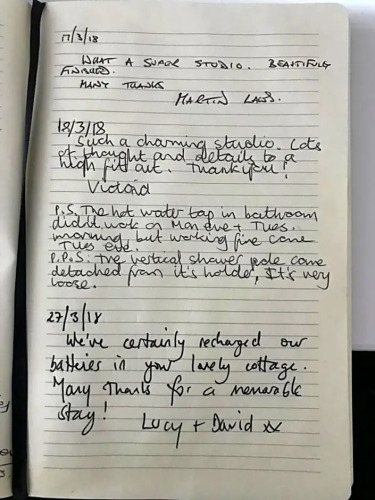 17/3/18
WHAT A SUPER STUDIO. BEAUTIFULLY
FINISHED.
MANY THANKS
MARTIN
18/3/18
Such a charming studio. Lots
of thought and details to a
high fit out. Thankyou!
Victoria
P.S. The hot water tap in bathroom
didn't work on Mon eve + Tues.
morning but working fine come
Tues eve.
P.P.S: the vertical shower pole came
detached from it's holder, It's very
loose.
27/3/18
We've certainly recharged our
batteries in your lovely cottage.
Many Thanks for a memorable
stay!
Lucy + David xx